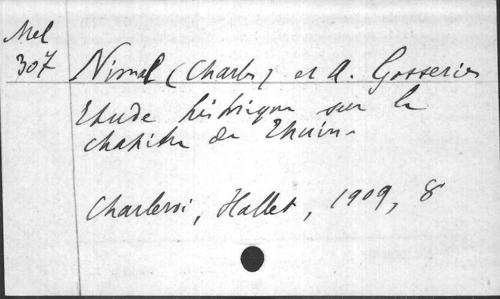 Mel
307
Nimal (Charles) et A. Gosseries
Etude historique sur le
chapitre de Thuin.
Charleroi, Hallet, 1909, 8